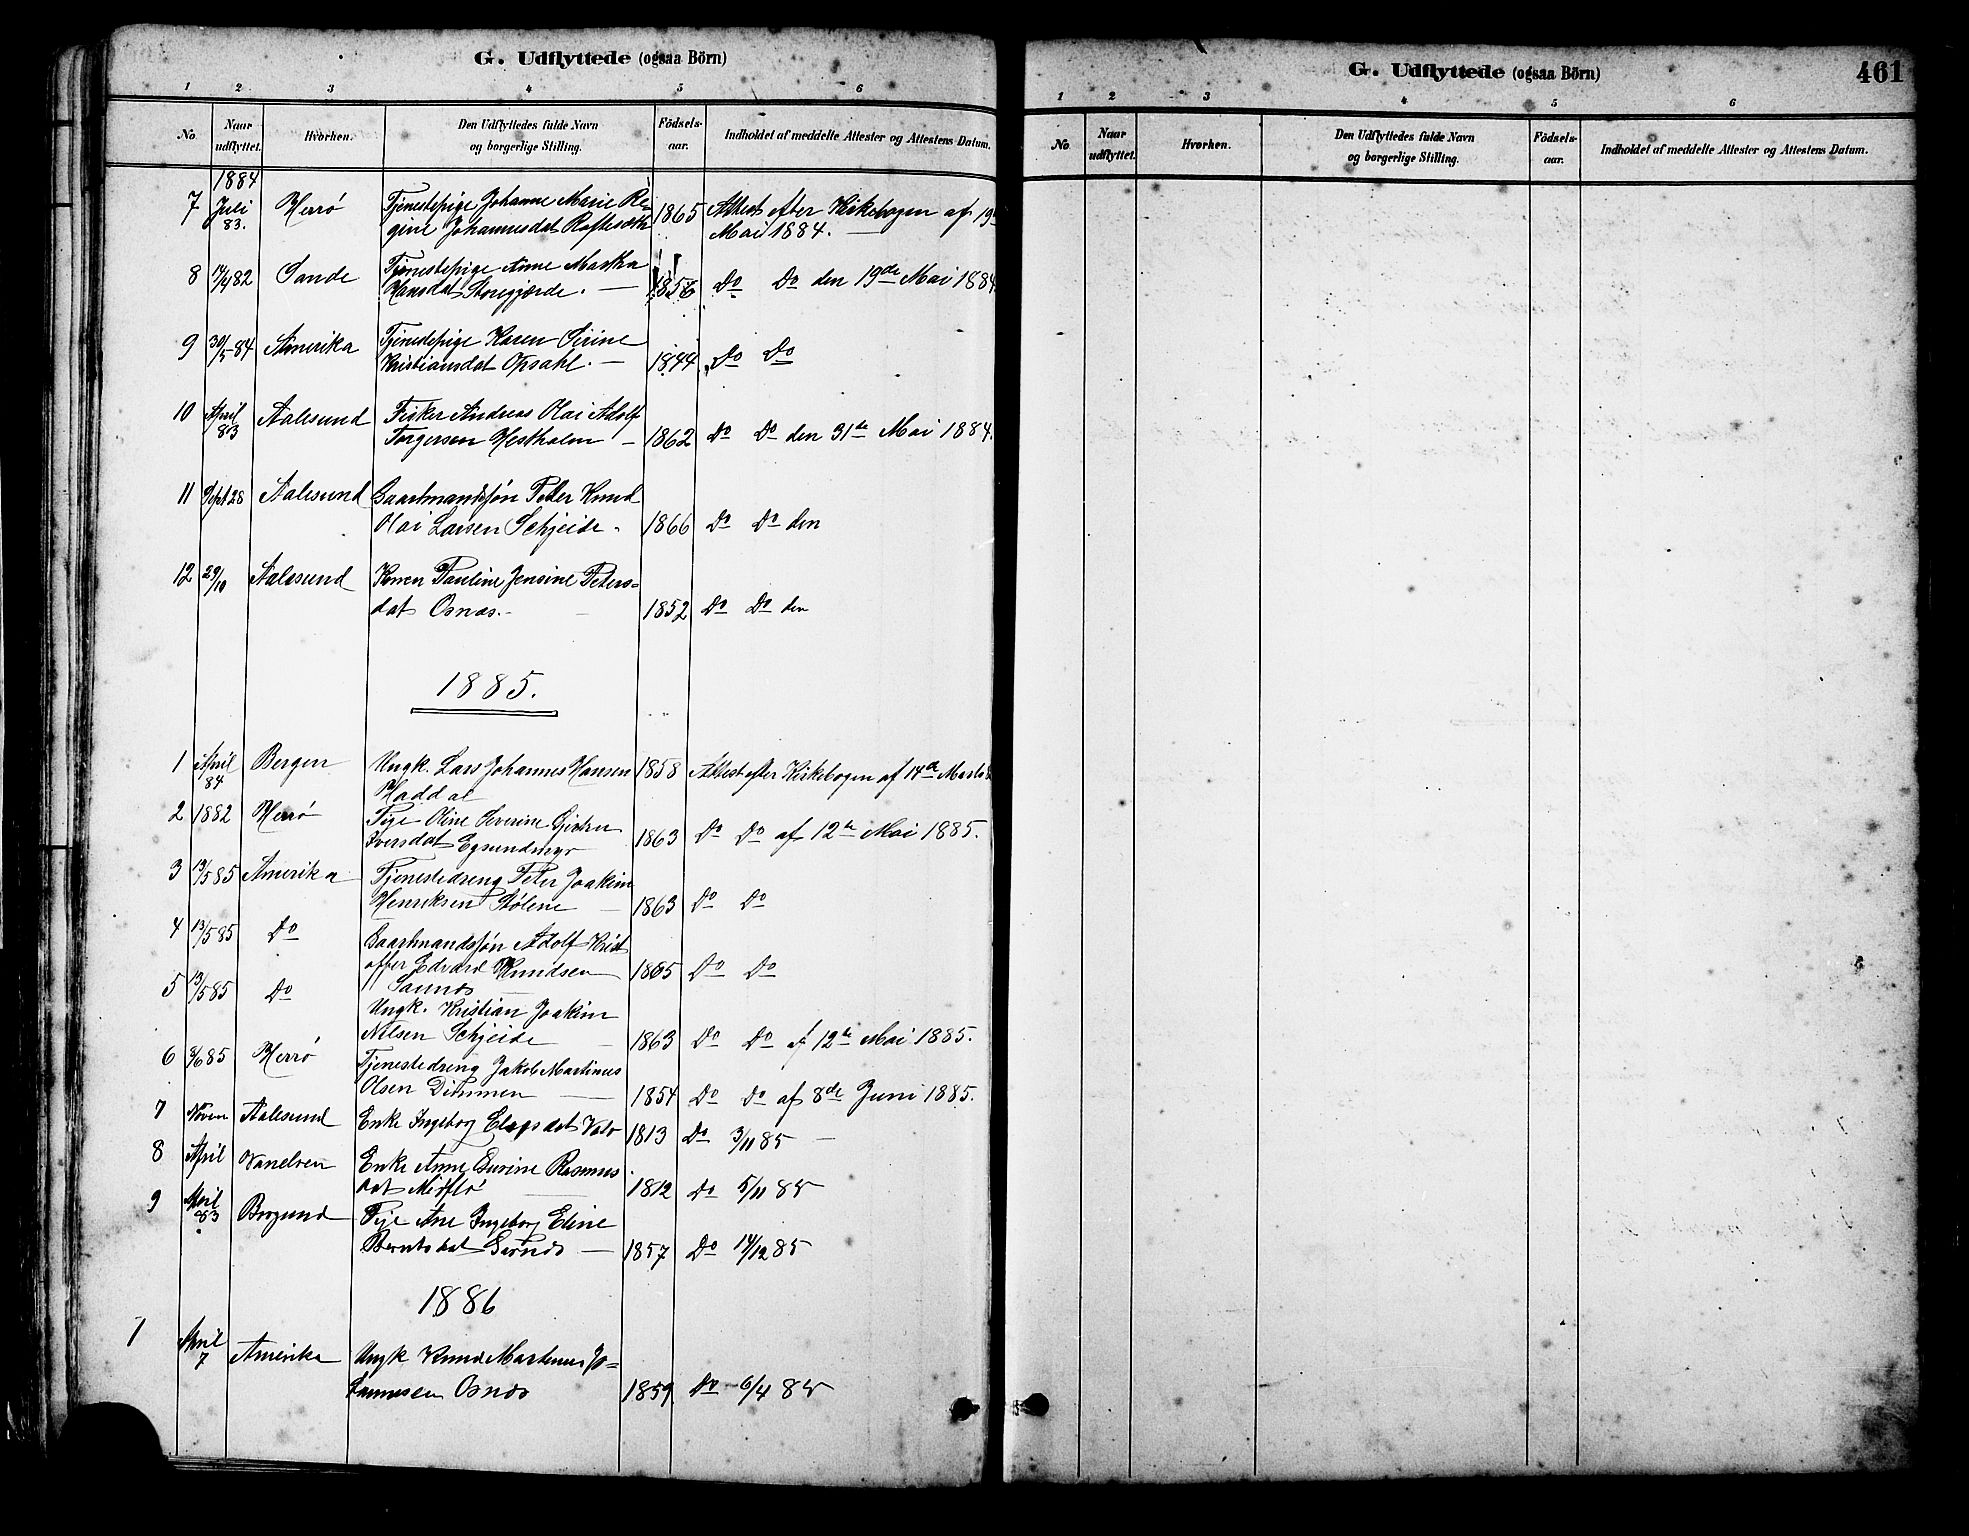 G. Udflyttede (ogsaa Börn)
1 2 3 4 5 6
No. Naar udflyttet. Hvorhen. Den Udflyttedes fulde Navn og borgerlige Stilling. Födsels-aar. Indholdet af meddelte Attester og Attestens Datum.
1884
7 Juli 83. Herrø Tjenestepige Johanne Marie Re- 1865 Attest efter Kirkebogen af 19de
gine Johannesdat Mai 1884. —
8 17/4 82 Sande Tjenestepige Anne Martha
Hansdat Storegjærde. — 1856 Do Do den 19de Mai 1884.
9 30/5 84 Amerika Tjenestepige Karen Sirine
Kristiansdat Opsahl. — 1844 Do Do
10 April 83 Aalesund Fisker Andreas Olai Adolf
Torgersen Hestholm — 1862 Do Do den 31te Mai 1884.
11 Sept 28 Aalesund Gaardmandssøn Peter Knud
Olai Larsen Schjeide. 1866 Do Do den
12 29/10 Aalesund Konen Pauline Jensine Peters-
dat Osnæs. 1852 Do Do den
1885.
1 April 84 Bergen Ungk. Lars Johannes Hansen 1858 Attest efter Kirkebogen af 14de Marts
Haddal
2 1882 Herrø Pige Oline Severine
Iversdat Egsundmyr 1863 Do Do af 12te Mai 1885.
3 13/5 85 Amerika Tjenestedreng Peter Joakim
Henriksen Stølene — 1863 Do Do
4 13/5 85 Do Gaardmandssøn Adolf Krist
offer Edvard Knudsen 1865 Do Do
5 13/5 85 Do
Ungk. Kristian Joakim
Nilsen Schjeide — 1863 Do Do af 12te Mai 1885.
6 3/6 85 Herrø Tjenestedreng Jakob Martinus
Olsen Dimmen — 1854 Do Do af 8de Juni 1885.
7 Novem Aalesund Enke Ingeborg 1813 Do 3/11 85 —
8 April Vanelven Enke Anne Gurine Rasmus
dat Myrflø 1812 Do 5/11 85
9 April 83 Borgund Pige Ane Ingeborg Eline
Berntsdat — 1857 Do 14/12 85
1886
1 April 7 Amerika Ungk Knud Martinus Jo-
hannesen Osnæs 1859. Do 6/4 85
G. Udflyttede (ogsaa Börn) 461
1 2 3 4 5 6
No. Naar udflyttet. Hvorhen. Den Udflyttedes fulde Navn og borgerlige Stilling. Födsels-aar. Indholdet af meddelte Attester og Attestens Datum.